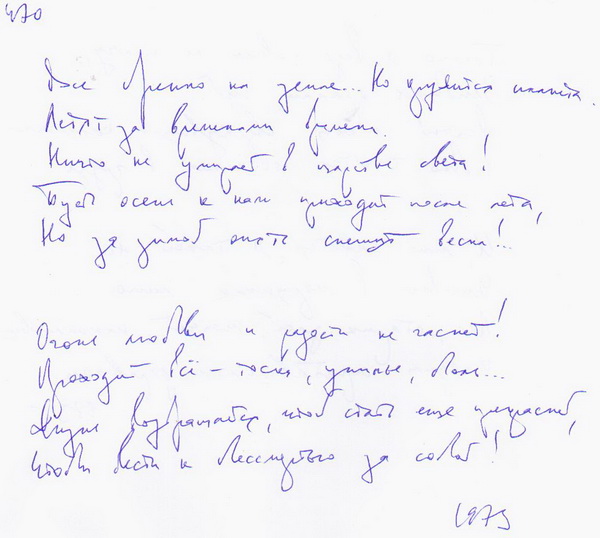 470
Все бренно на земле... Но кружится планета.
Летят за временами времена.
Ничто не умирает в царстве света!
Пусть осень к нам приходит после лета,
Но за зимой опять спешит весна!..
Огонь любви и радости не гаснет!
Проходит всё – тоска, унынье, боль...
Жизнь возвращается, чтоб стать еще прекрасней,
Чтобы вести к бессмертью за собой!
1975